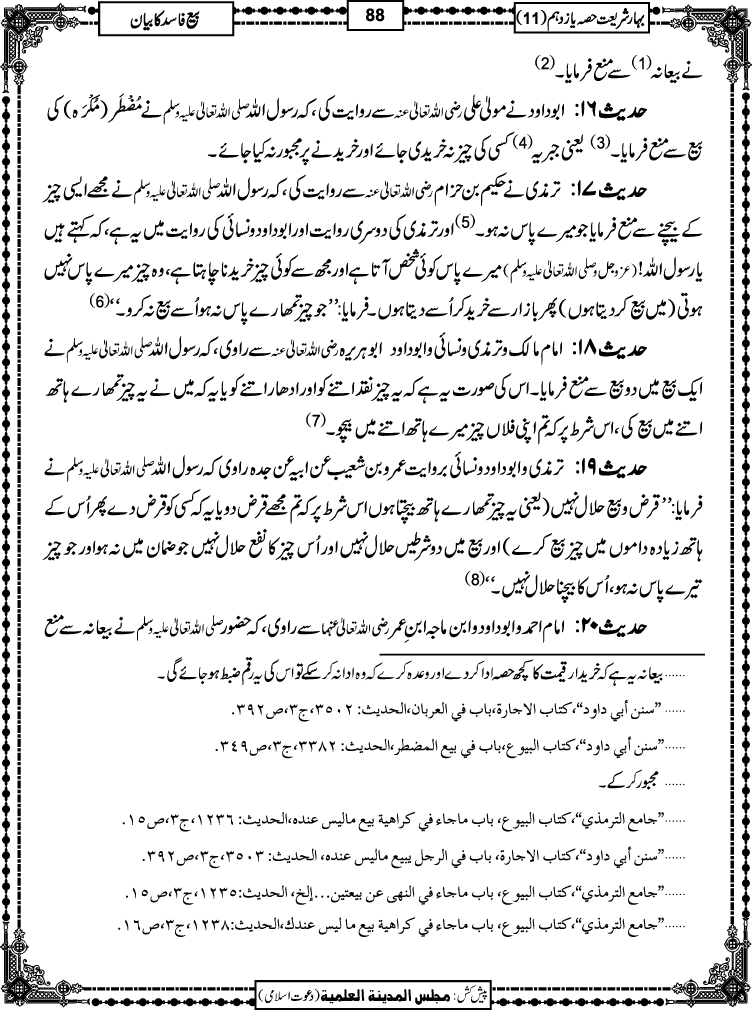 بہارشریعت حصہ یازدہم (11)
88
بیع فاسد کا بیان
نے بیعانہ (1) سے منع فرمایا۔ (2)
حدیث ۱۶: ابوداود نے مولیٰ علی رضی اللہ تعالیٰ عنہ سے روایت کی، کہ رسول اللہ صلی اللہ تعالیٰ علیہ وسلم نے مُضْطَر (مُکْرَہ) کی
بیع سے منع فرمایا۔ (3) یعنی جبریہ (4) کسی کی چیز نہ خریدی جائے اور خریدنے پر مجبور نہ کیا جائے۔
حدیث ۱۷: ترمذی نے حکیم بن حزام رضی اللہ تعالیٰ عنہ سے روایت کی، کہ رسول اللہ صلی اللہ تعالیٰ علیہ وسلم نے مجھے ایسی چیز
کے بیچنے سے منع فرمایا جو میرے پاس نہ ہو۔ (5) اور ترمذی کی دوسری روایت اور ابوداود و نسائی کی روایت میں یہ ہے، کہ کہتے ہیں
یارسول اللہ! (عزوجل وصلی اللہ تعالیٰ علیہ وسلم) میرے پاس کوئی شخص آتا ہے اور مجھ سے کوئی چیز خریدنا چاہتا ہے، وہ چیز میرے پاس نہیں
ہوتی (میں بیع کردیتا ہوں) پھر بازار سے خرید کر اُسے دیتا ہوں۔ فرمایا: ’’جو چیز تمھارے پاس نہ ہو اُسے بیع نہ کرو۔‘‘ (6)
حدیث ۱۸: امام مالک و ترمذی و نسائی و ابوداود ابوہریرہ رضی اللہ تعالیٰ عنہ سے راوی، کہ رسول اللہ صلی اللہ تعالیٰ علیہ وسلم نے
ایک بیع میں دو بیع سے منع فرمایا۔ اس کی صورت یہ ہے کہ یہ چیز نقد اتنے کو اور ادھار اتنے کو یا یہ کہ میں نے یہ چیز تمھارے ہاتھ
اتنے میں بیع کی، اس شرط پر کہ تم اپنی فلاں چیز میرے ہاتھ اتنے میں بیچو۔ (7)
حدیث ۱۹: ترمذی و ابوداود و نسائی بروایت عمرو بن شعیب عن ابیہ عن جدہ راوی کہ رسول اللہ صلی اللہ تعالیٰ علیہ وسلم نے
فرمایا: ’’قرض و بیع حلال نہیں (یعنی یہ چیز تمھارے ہاتھ بیچتا ہوں اس شرط پر کہ تم مجھے قرض دو یا یہ کہ کسی کو قرض دے پھر اُس کے
ہاتھ زیادہ داموں میں چیز بیع کرے) اور بیع میں دو شرطیں حلال نہیں اور اُس چیز کا نفع حلال نہیں جو ضمان میں نہ ہو اور جو چیز
تیرے پاس نہ ہو، اُس کا بیچنا حلال نہیں۔‘‘ (8)
حدیث ۲۰: امام احمد و ابوداود و ابن ماجہ ابنِ عمر رضی اللہ تعالیٰ عنہما سے راوی، کہ حضور صلی اللہ تعالیٰ علیہ وسلم نے بیعانہ سے منع
......بیعانہ یہ ہے کہ خریدار قیمت کا کچھ حصہ ادا کردے اور وعدہ کرے کہ وہ ادا نہ کرسکے تو اس کی یہ رقم ضبط ہوجائے گی۔
......”سنن أبي داود“، كتاب الاجارة، باب في العربان، الحديث: ٣٥٠٢، ج٣، ص٣٩٢.
......”سنن أبي داود“، كتاب البيوع، باب في بيع المضطر، الحديث: ٣٣٨٢، ج٣، ص٣٤٩.
...... مجبور کرکے۔
......”جامع الترمذي“، كتاب البيوع، باب ماجاء في كراهية بيع ماليس عنده، الحديث: ١٢٣٦، ج٣، ص١٥.
......”سنن أبي داود“، كتاب الاجارة، باب في الرجل يبيع ماليس عنده، الحديث: ٣٥٠٣، ج٣، ص٣٩٢.
......”جامع الترمذي“، كتاب البيوع، باب ماجاء في النهى عن بيعتين...إلخ، الحديث: ١٢٣٥، ج٣، ص١٥.
......”جامع الترمذي“، كتاب البيوع، باب ماجاء في كراهية بيع ما ليس عندك، الحديث: ١٢٣٨، ج٣، ص١٦.
پیش کش: مجلس المدینة العلمیة (دعوت اسلامی)